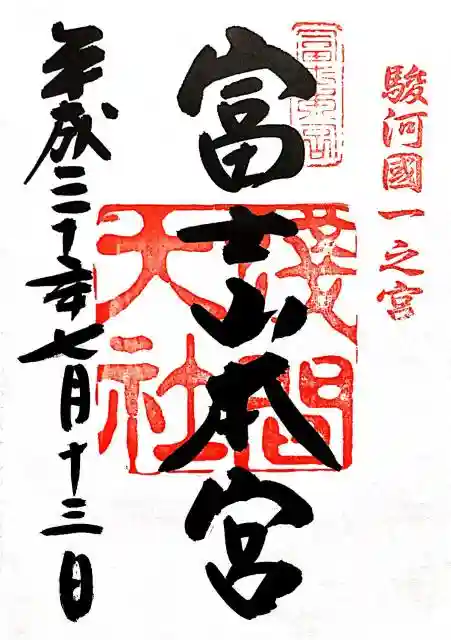 駿河國一之宮
富士山本宮
淺間大社
平成
年七月十三日